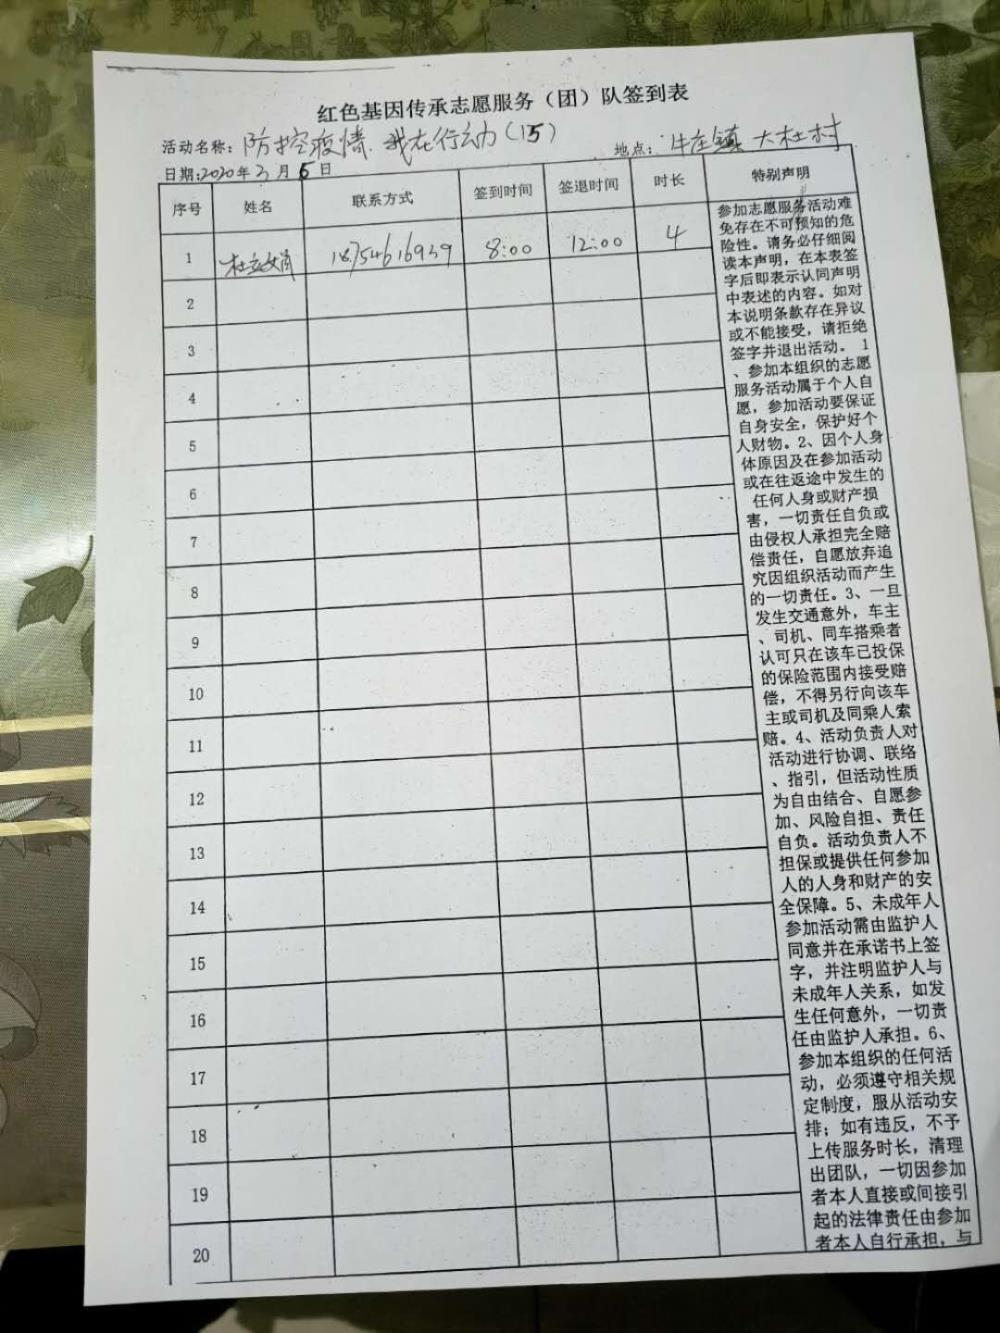 红色基因传承志愿服务（团）队签到表
活动名称：防控疫情.我在行动（15） 地点：牛庄镇 大杜村
日期:2020年3月5日
序号 姓名 联系方式 签到时间 签退时间 时长 特别声明
1 18754616939 8:00 12:00 4
2
3
4
5
6
7
8
9
10
11
12
13
14
15
16
17
18
19
20
参加志愿服务活动难
免存在不可预知的危
险性。请务必仔细阅
读本声明，在本表签
字后即表示认同声明
中表述的内容。如对
本说明条款存在异议
或不能接受，请拒绝
签字并退出活动。1
、参加本组织的志愿
服务活动属于个人自
愿，参加活动要保证
自身安全，保护好个
人财物。2、因个人身
体原因及在参加活动
或在往返途中发生的
任何人身或财产损
害，一切责任自负或
由侵权人承担完全赔
偿责任，自愿放弃追
究因组织活动而产生
的一切责任。3、一旦
发生交通意外，车主
、司机、同车搭乘者
认可只在该车已投保
的保险范围内接受赔
偿，不得另行向该车
主或司机及同乘人索
赔。4、活动负责人对
活动进行协调、联络
、指引，但活动性质
为自由结合、自愿参
加、风险自担、责任
自负。活动负责人不
担保或提供任何参加
人的人身和财产的安
全保障。5、未成年人
参加活动需由监护人
同意并在承诺书上签
字，并注明监护人与
未成年人关系，如发
生任何意外，一切责
任由监护人承担。6、
参加本组织的任何活
动，必须遵守相关规
定制度，服从活动安
排；如有违反，不予
上传服务时长，清理
出团队，一切因参加
者本人直接或间接引
起的法律责任由参加
者本人自行承担，与